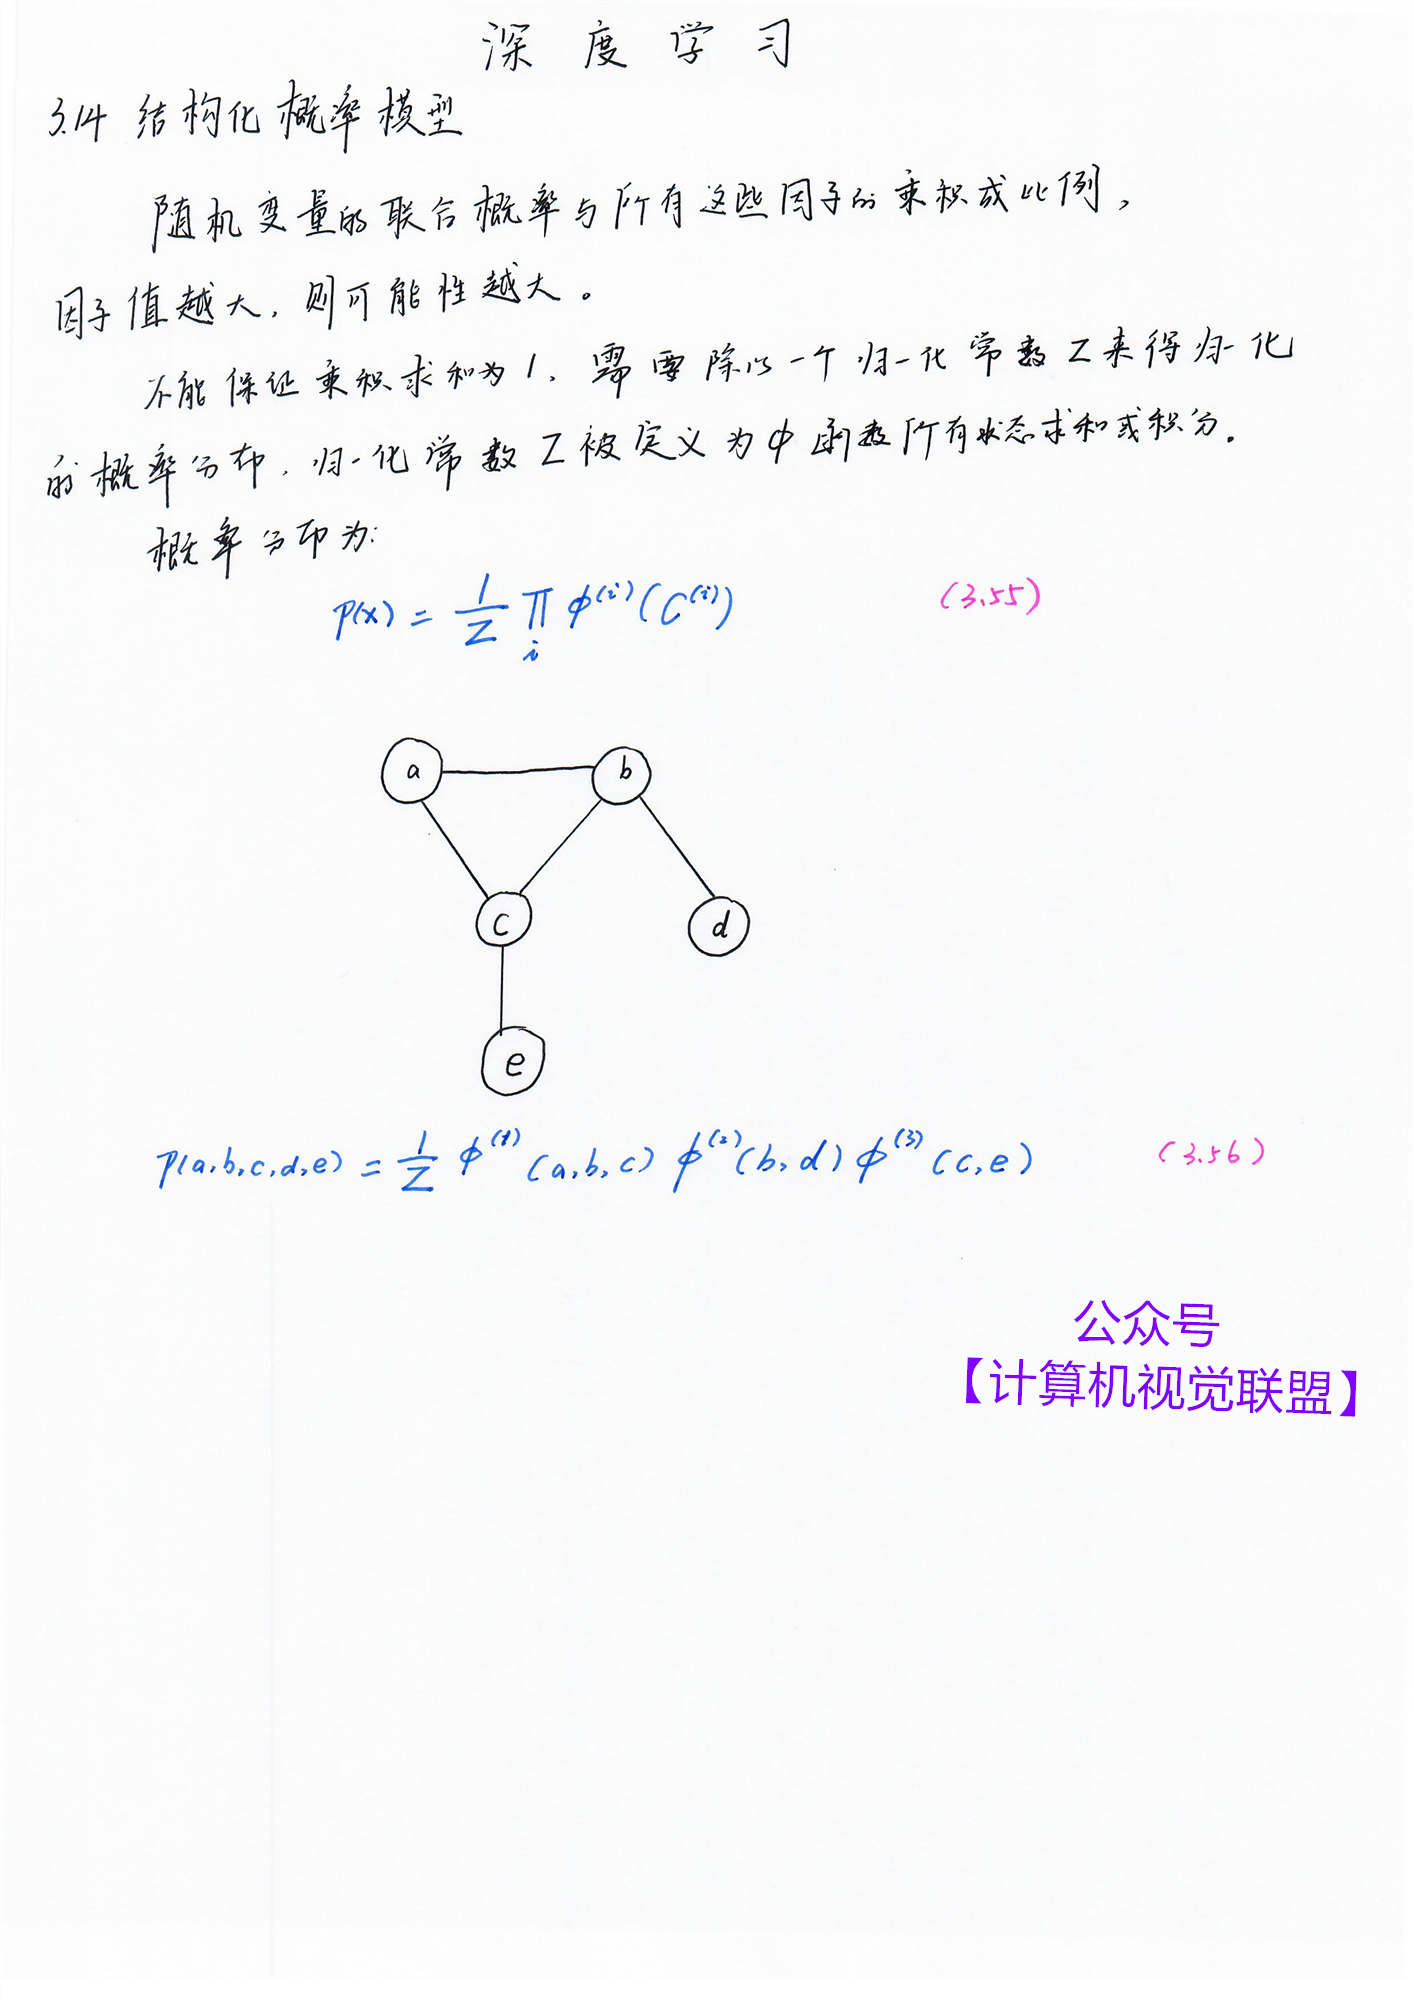 深度学习
3.14 结构化概率模型
随机变量的联合概率与所有这些因子的乘积成比例，
因子值越大，则可能性越大。
不能保证乘积求和为1，需要除以一个归一化常数Z来得归一化
的概率分布，归一化常数Z被定义为φ函数所有状态求和或积分。
概率分布为：
p(x) = 1/Z ∏_i φ^(i)(C^(i)) (3.55)
a b
c d
e
p(a,b,c,d,e) = 1/Z φ^(1)(a,b,c) φ^(2)(b,d) φ^(3)(c,e) (3.56)
公众号
【计算机视觉联盟】